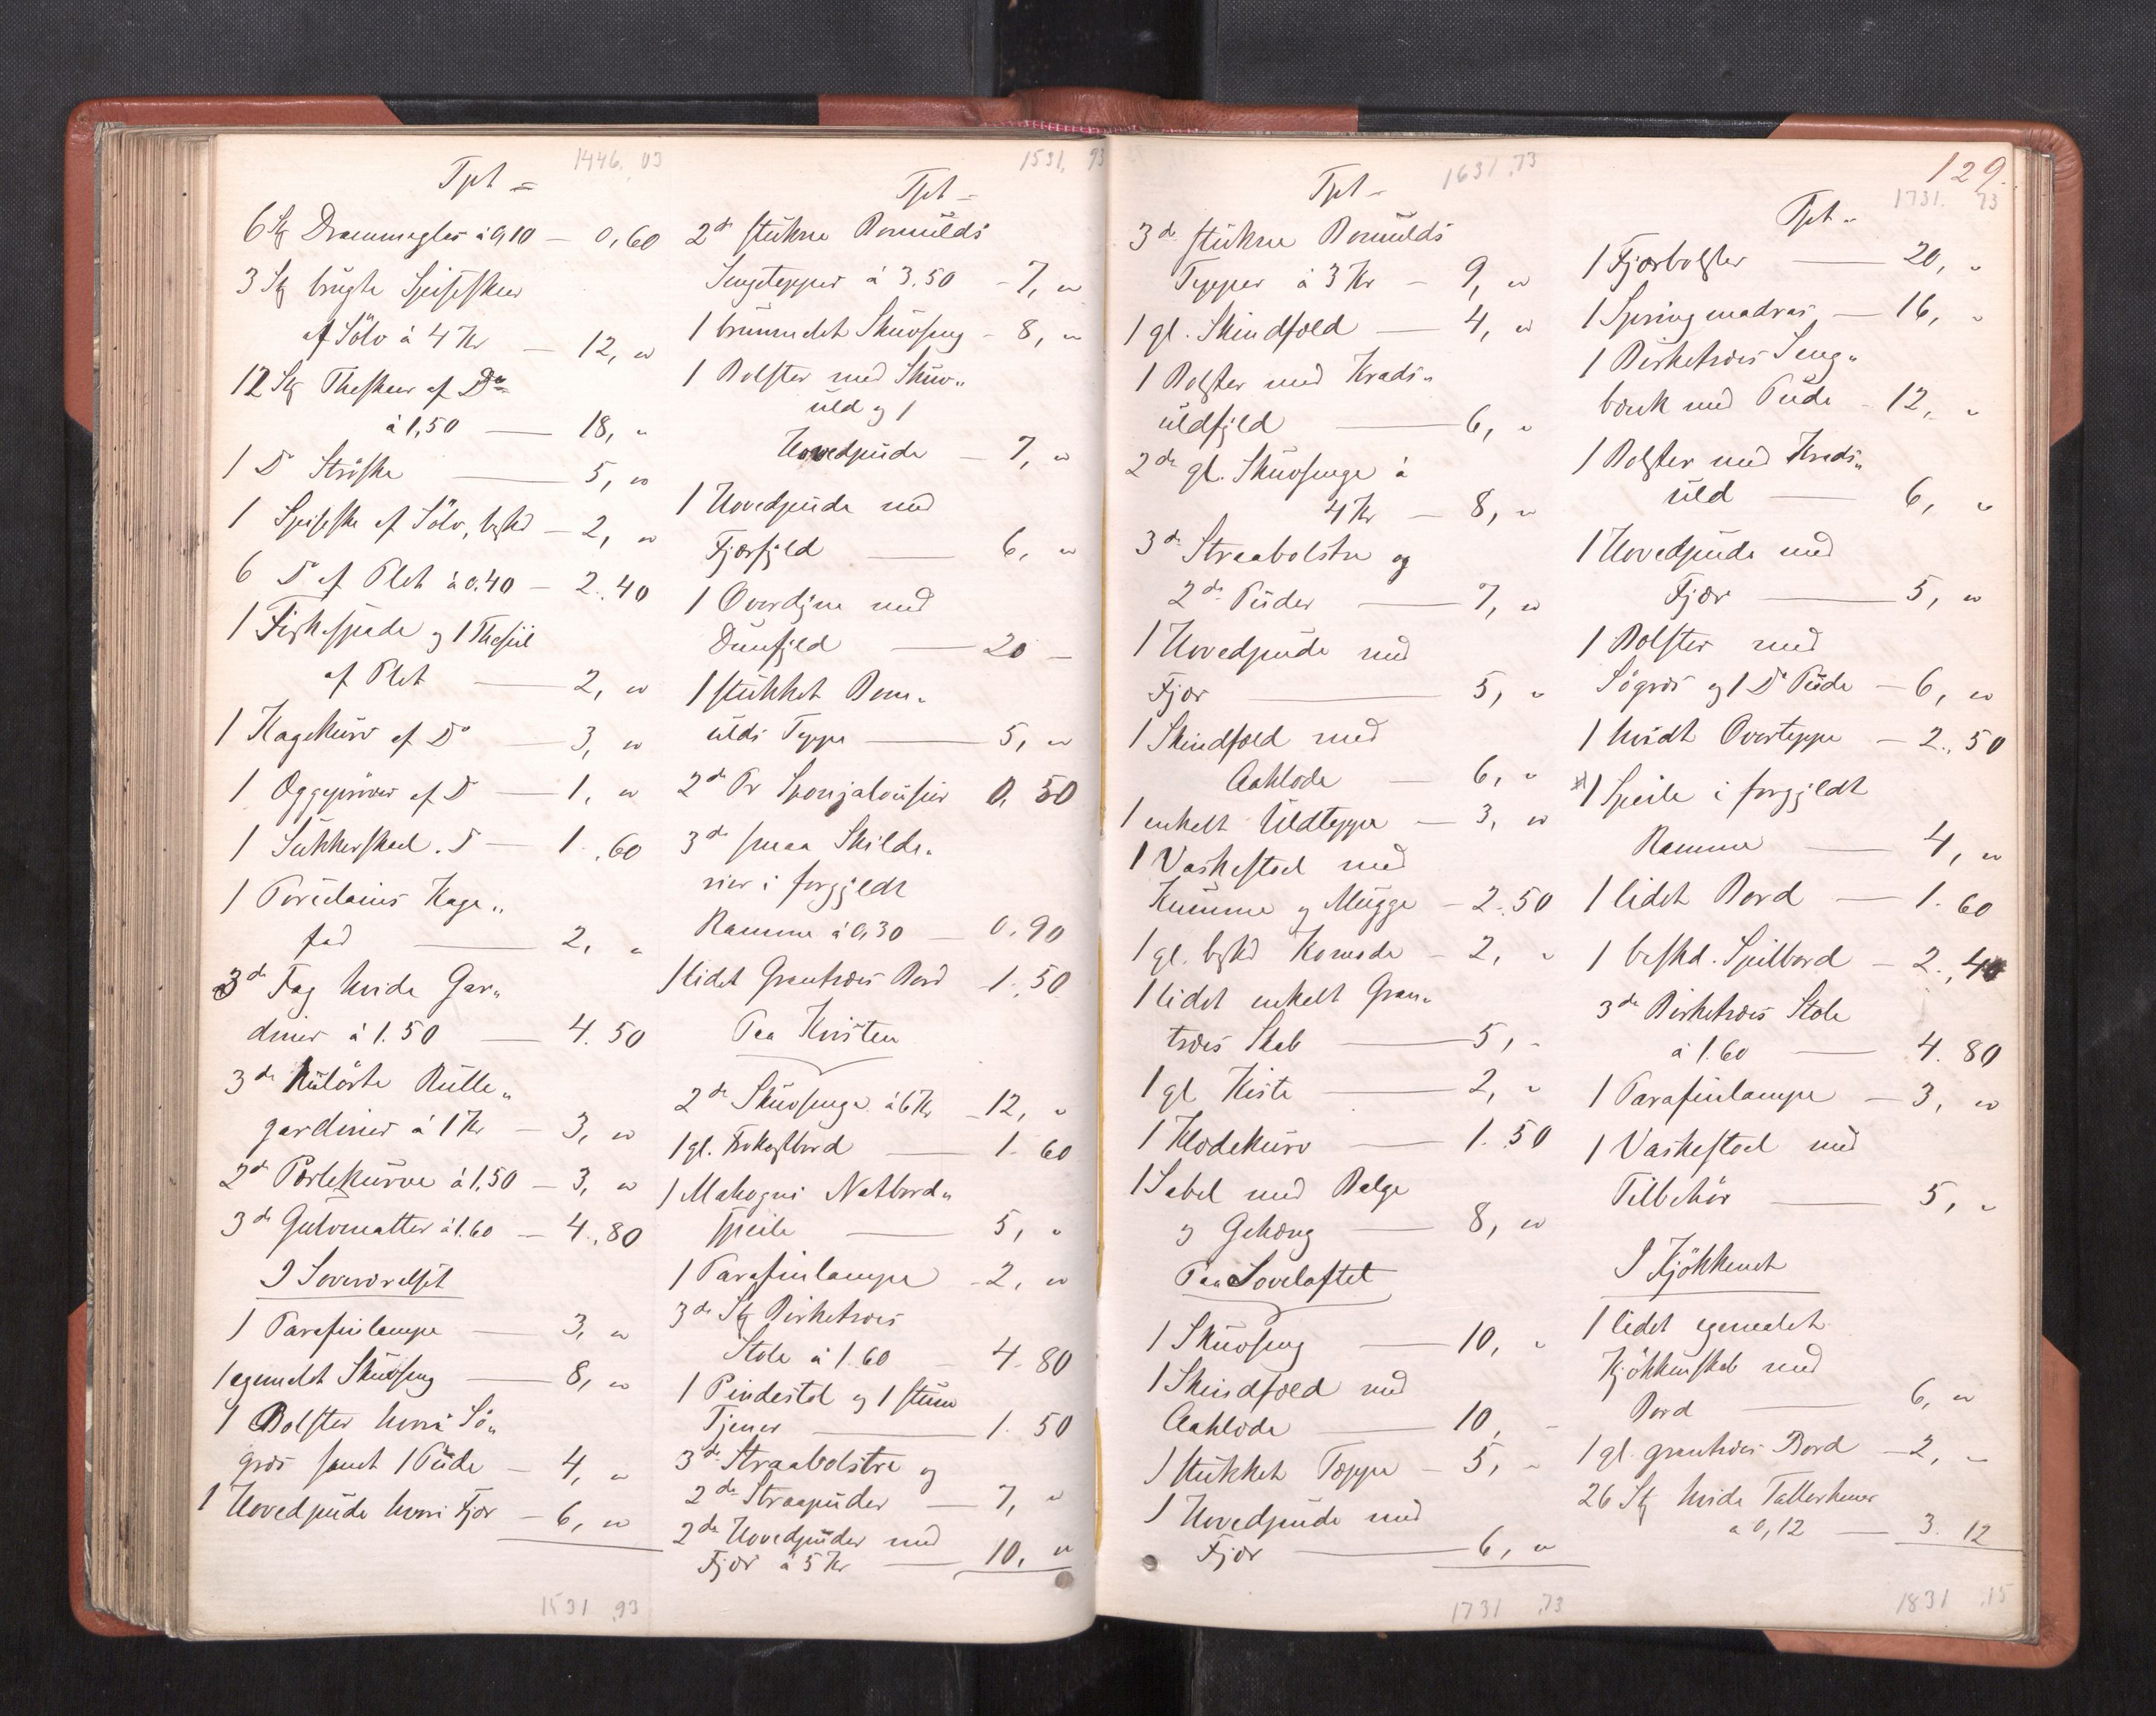 1446,03
Tpt =
6 Stk Drammeglas à 0,10 — 0,60
3 Stk brugte Spiseskeer
af Sölv à 4 Kr — 12, "
12 Stk Theskeer af Do
à 1,50 — 18, "
1 Do Ströske — 5, "
1 Spiseske af Sölv, beskd — 2, "
6 Do af Plet à 0.40 — 2.40
1 Fiskespade og 1 Thesiil
af Plet — 2, "
1 Kagekurv af Do — 3, "
1 Æggeprøver af Do — 1, "
1 Sukkerskaal. Do — 1.60
1 Porcelains Kage„
fad — 2, "
3de Fag hvide Gar„
diner à 1.50 — 4.50
3de kulörte Rulle„
gardiner à 1 Kr — 3, "
2de Perlekurve à 1,50 — 3, "
3de Gulvmatter à 1.60 — 4.80
I Soveværelset
1 Parafinlampe — 3, "
1 egemalet Skuvseng — 8, "
1 Bolster hvori Sö„
græs samt 1 Pude — 4, "
1 Hovedpude hvori Fjær — 6, "
1531.93
1531,93
Tpt =
2de stukne Bomulds
Sengetepper à 3.50 — 7, "
1 brunmalet Skuvseng — 8, "
1 Bolster med Skuv„
uld og 1
Hovedpude — 7, "
1 Hovedpude med
Fjærfyld — 6, "
1 Overdyne med
Dunfyld — 20 —
1 stukket Bom„
ulds Teppe — 5, "
2de Pr Sponjalousier 0.50
3de smaa Skilde„
rier i forgyldt
Ramme à 0,30 — 0.90
1 lidet Grantræes Bord 1.50
Paa Kvisten
2de Skuvsenge à 6 Kr — 12, "
1 gl. Frokostbord — 1.60
1 Mahogni Natbord„
speile — 5, "
1 Parafinlampe — 2, "
3de Stk Birketræes
Stole à 1.60 — 4.80
1 Pindestol og 1 stum
Tjener — 1.50
3de Straabolstre og
2de Straapuder — 7, "
2de Hovedpuder med
Fjær à 5 Kr — 10, "
1631,73
Tpt =
3de stukne Bomulds
Tepper à 3 Kr — 9, "
1 gl. Skindfæld — 4, "
1 Bolster med Krads„
uldfyld — 6, "
2de gl. Skuvsenge à
4 Kr — 8, "
3de Straabolstre og
2de Puder — 7, "
1 Hovedpude med
Fjær — 5, "
1 Skindfæld med
Aaklæde — 6, "
1 enkelt Uldteppe — 3, "
1 Vaskestol med
Kumme og Mugge — 2.50
1 gl. beskd Komode — 2, "
1 lidet enkelt Gran„
træes Skab — 5, "
1 gl Kiste — 2, "
1 Klædekurv — 1.50
1 Sabel med Balge
og Gehæng — 8, "
Paa Soveloftet
1 Skuvseng — 10, "
1 Skindfæld med
Aaklæde — 10, "
1 stukket Teppe — 5, "
1 Hovedpude med
Fjær — 6, "
1731.73
129.
1731.73
Tpt =
1 Fjærbolster — 20, "
1 Springmadras — 16, "
1 Birketræes Seng„
bænk med Pude — 12, "
1 Bolster med Krads„
uld — 6, "
1 Hovedpude med
Fjær — 5, "
1 Bolster med
Sögræs og 1 Do Pude — 6, "
1 hvidt Overteppe — 2.50
1 Speile i forgyldt
Ramme — 4, "
1 lidet Bord — 1.60
1 beskd. Spilbord — 2.40
3de Birketræes Stole
à 1.60 — 4.80
1 Parafinlampe — 3, "
1 Vaskestol med
Tilbehör — 5, "
I Kjökkenet
1 lidet egemalet
Kjökkenskab med
Bord — 6, "
1 gl. grantræes Bord — 2, "
26 Stk hvide Tallerkener
à 0,12 — 3.12
1831.15